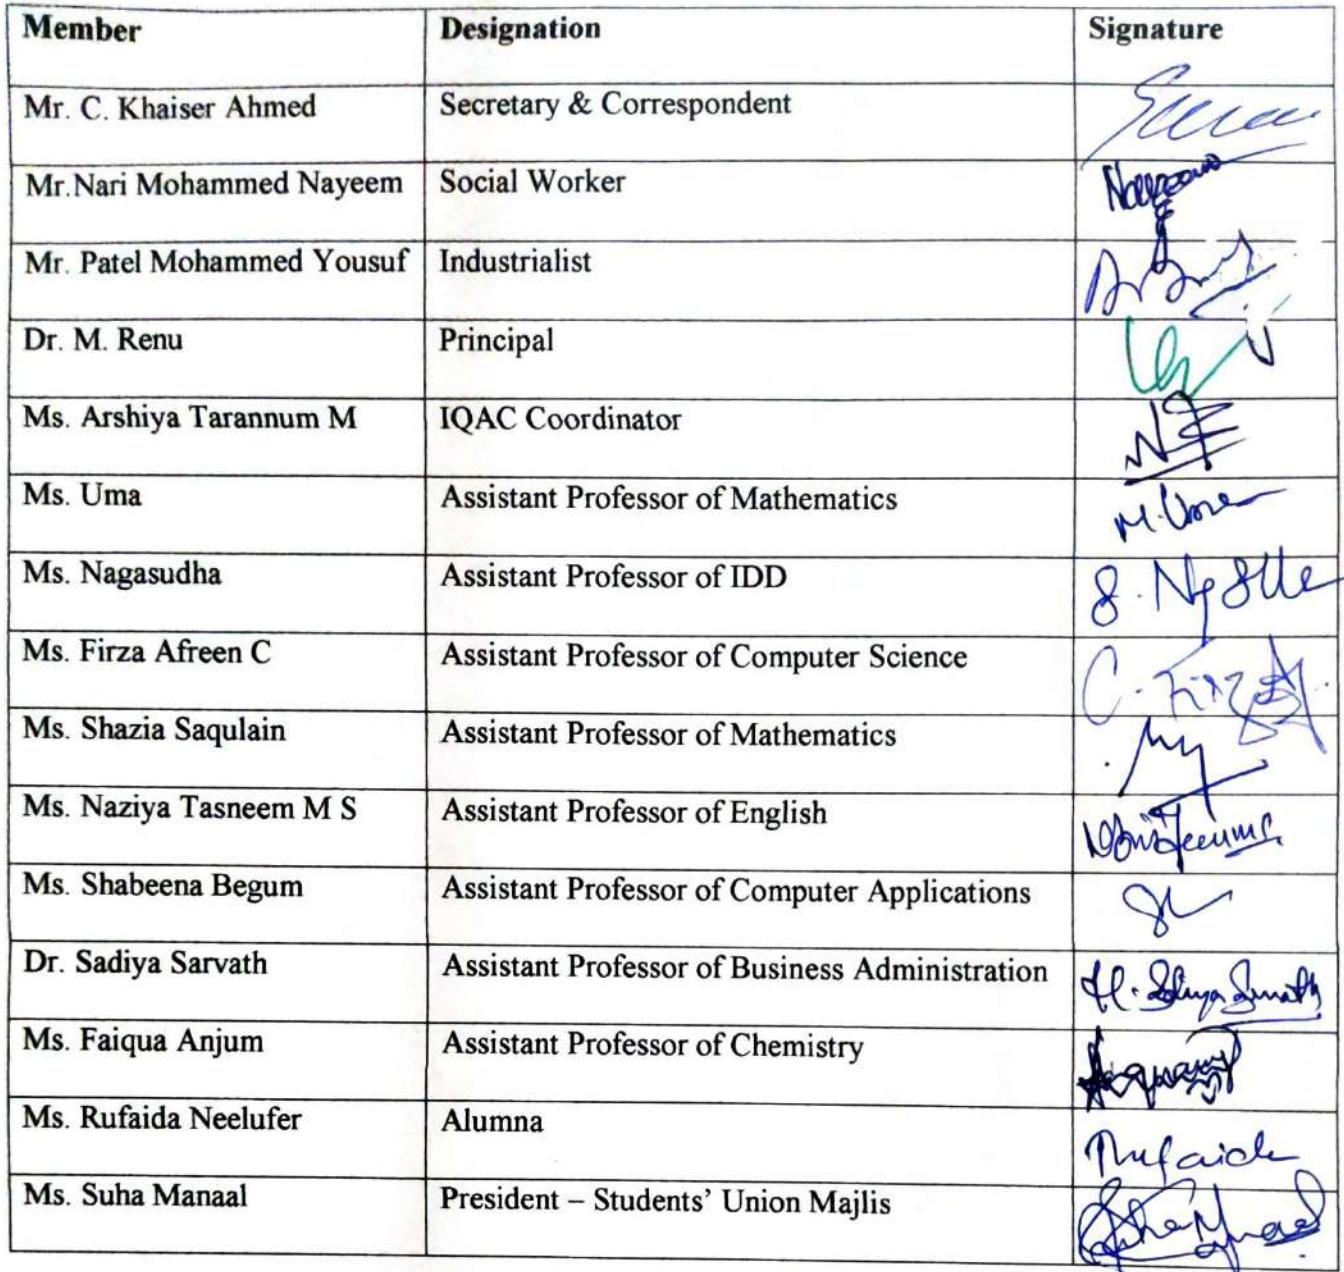 Member Designation Signature
Mr. C. Khaiser Ahmed Secretary & Correspondent
Mr.Nari Mohammed Nayeem Social Worker
Mr. Patel Mohammed Yousuf Industrialist
Dr. M. Renu Principal
Ms. Arshiya Tarannum M IQAC Coordinator
Ms. Uma Assistant Professor of Mathematics M. Uma
Ms. Nagasudha Assistant Professor of IDD
Ms. Firza Afreen C Assistant Professor of Computer Science
Ms. Shazia Saqulain Assistant Professor of Mathematics
Ms. Naziya Tasneem M S Assistant Professor of English
Ms. Shabeena Begum Assistant Professor of Computer Applications
Dr. Sadiya Sarvath Assistant Professor of Business Administration
Ms. Faiqua Anjum Assistant Professor of Chemistry
Ms. Rufaida Neelufer Alumna
Ms. Suha Manaal President – Students’ Union Majlis